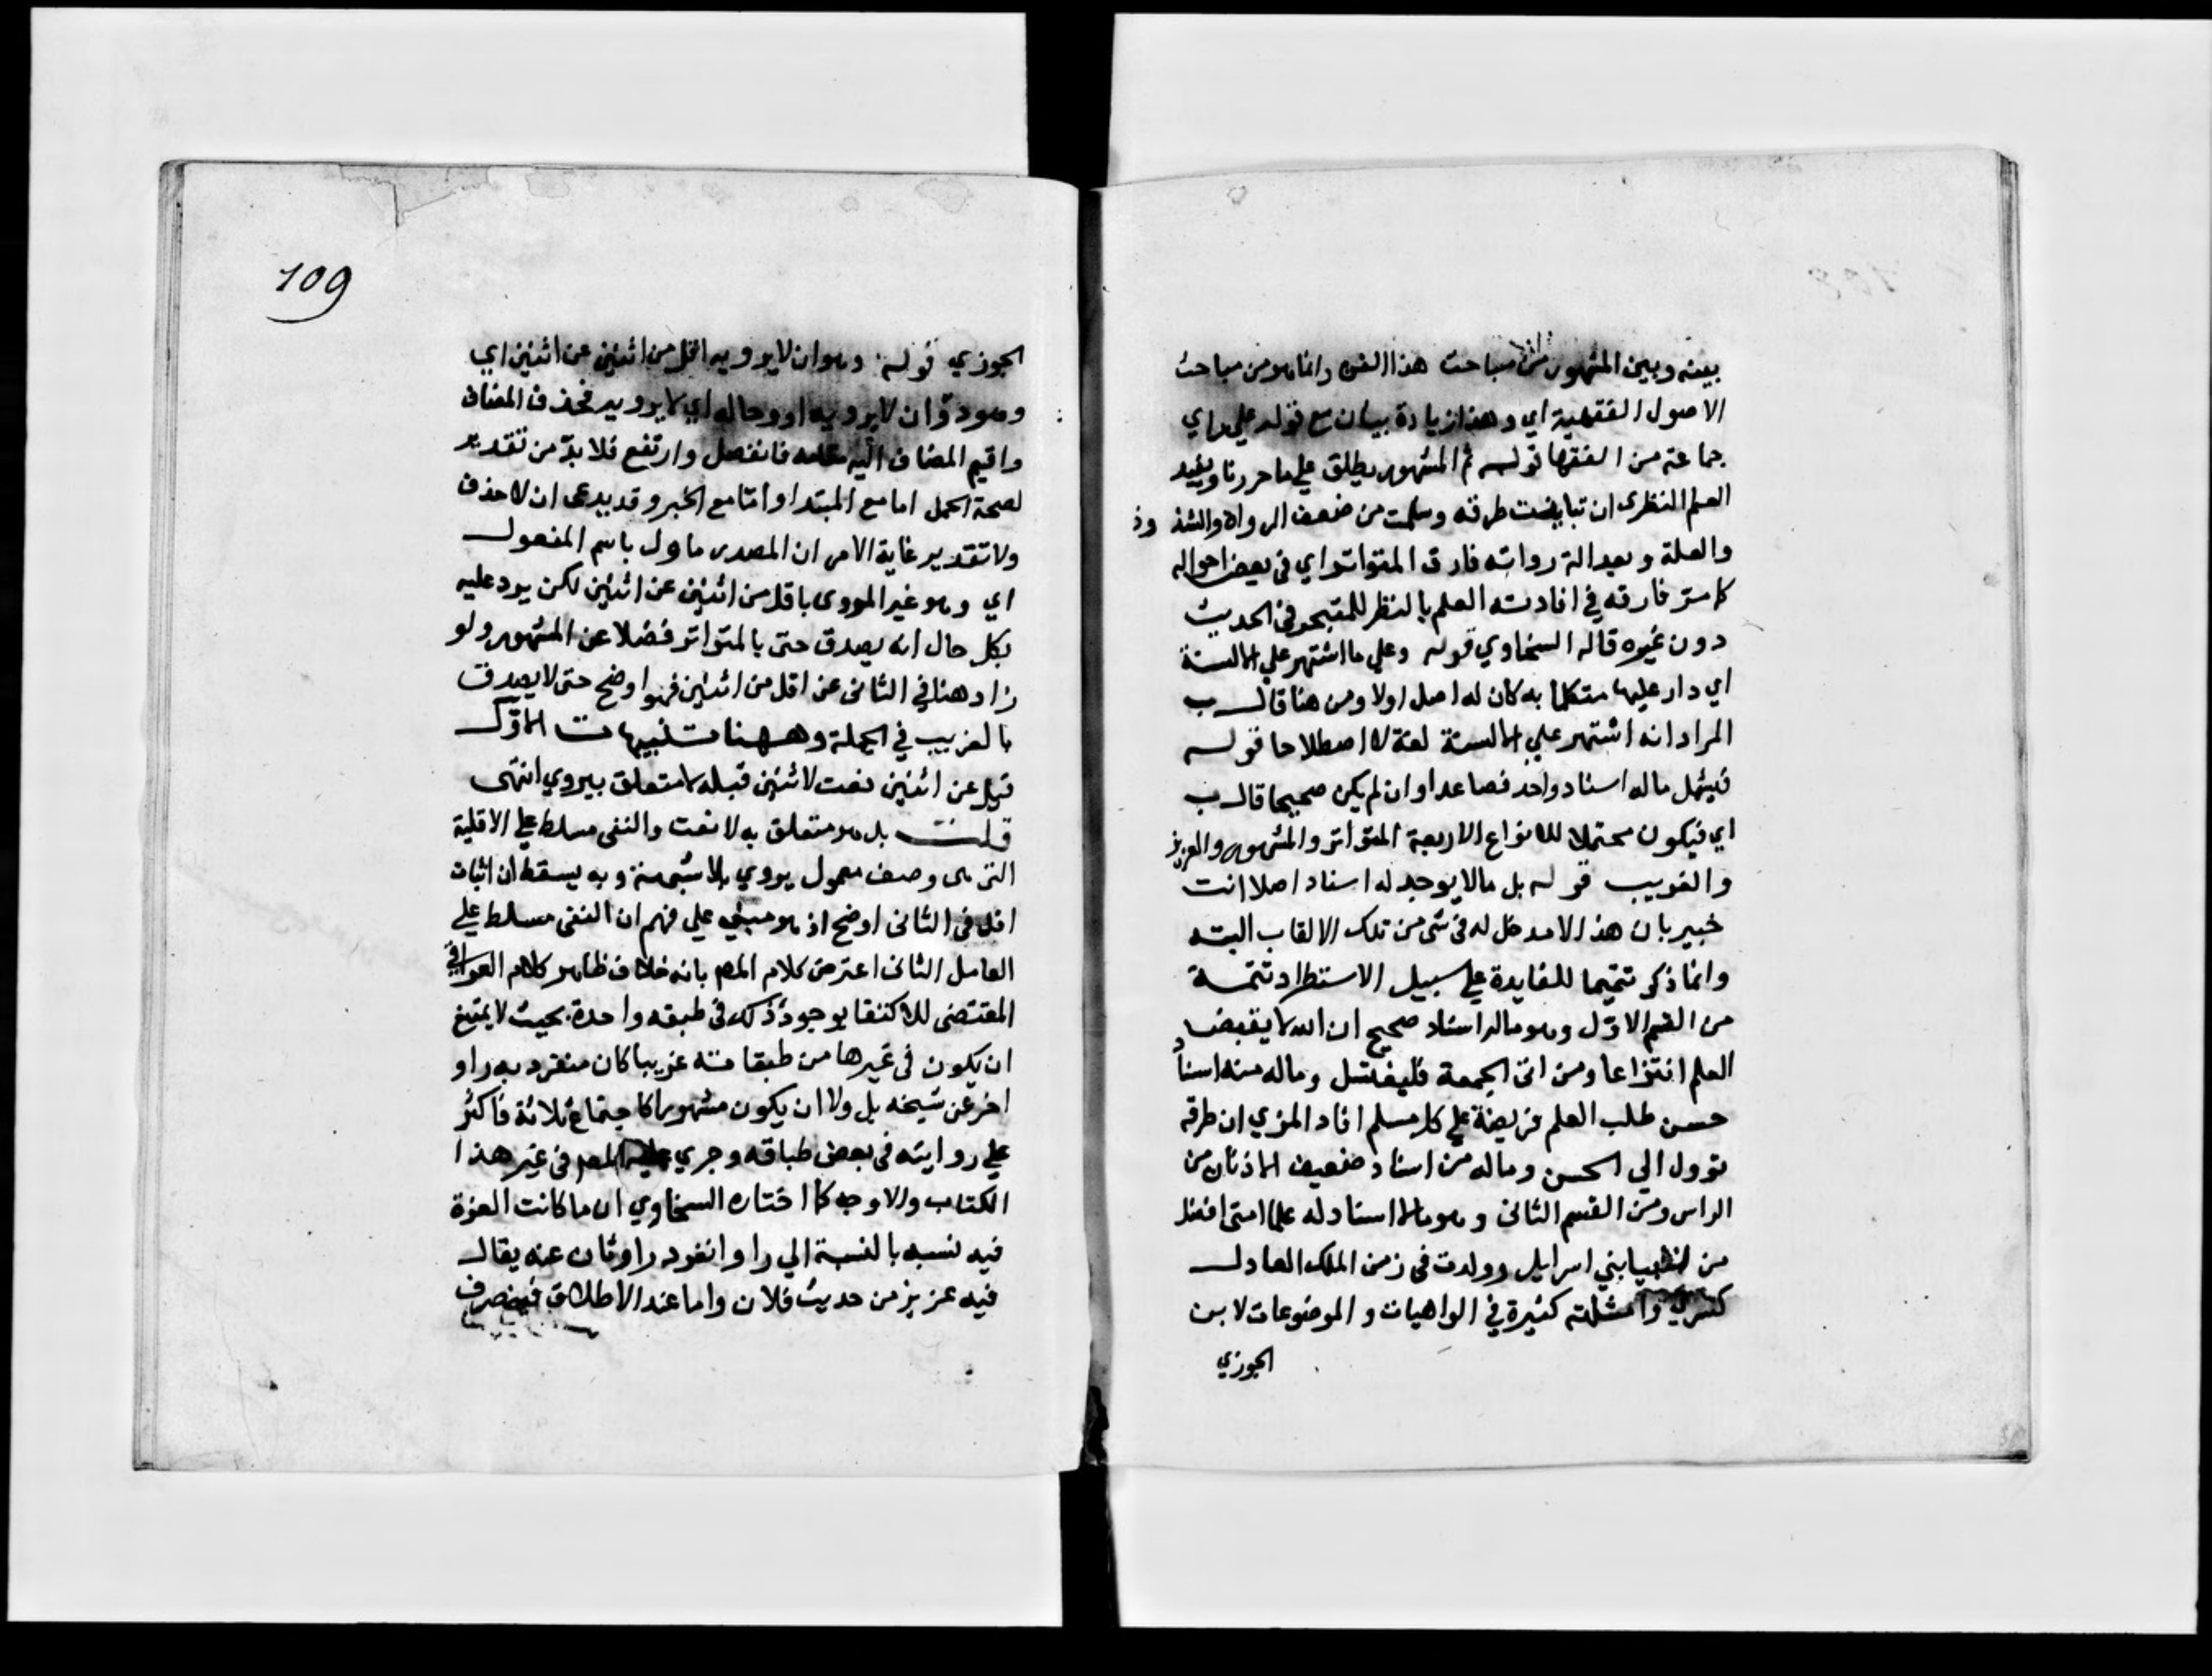 بينه وبين المشهور من مباحث هذا الفن وانما هو من مباحث
الاصول الفقهية اي وهذا زيادة بيان مع قوله علي راي
جماعة من الفقها قوله ثم المشهور يطلق علي ما حررنا ويفيد
العلم النظرى ان تباينت طرقه وسلمت من ضعف الرواة والشذوذ
والعلة وبعدالة رواته فارق المتواتر اي في بعض احواله
كما مر فارقه في افادته العلم بالنظر للمتبحر في الحديث
دون غيره قاله السخاوي قوله وعلي ما اشتهر علي الالسنة
اي دار عليها متكلما به كان له اصل اولا ومن هنا قال ب
المراد انه اشتهر علي الالسنة لغة لا اصطلاحا قوله
فيشمل ماله اسناد واحد فصاعدا وان لم يكن صحيحا قال ب
اي فيكون محتملا للانواع الاربعة المتواتر والمشهور والعزيز
والغريب قوله بل مالا يوجد له اسناد اصلا انت
خبير بان هذا لا مدخل له في شي من تلك الالقاب البته
وانما ذكر تتميما للفايدة علي سبيل الاستطراد تتمة
من القسم الاول وهو ماله اسناد صحيح ان الله لا يقبض
العلم انتزاعا ومن اتى الجمعة فليغتسل وماله منه اسناد
حسن طلب العلم فريضة علي كل مسلم افاد المزي ان طرقه
توول الي الحسن وماله من اسناد ضعيف الاذنان من
الراس ومن القسم الثانى وهو مالا اسناد له علما امتى افضل
من انبيا بني اسرايل وولدت في زمن الملك العادل
كسري وامثلته كثيرة في الواهيات والموضوعات لابن
الجوزي
109
الجوزي قوله وهو ان لا يرويه اقل من اثنين عن اثنين اي
وهو ذو ان لا يرويه او وحاله اي لا يرويه فحذف المضاف
واقيم المضاف اليه مقامه فانفصل وارتفع فلا بد من تقدير
لصحة الحمل اما مع المبتدا واما مع الخبر وقد يدعى ان لا حذف
ولا تقدير غاية الامر ان المصدر ماول باسم المفعول
اي وهو غير المروى باقل من اثنين عن اثنين لكن يرد عليه
بكل حال انه يصدق حتى بالمتواتر فضلا عن المشهور ولو
زاد هنا في الثانى عن اقل من اثنين فهو اوضح حتى لا يصدق
بالغريب في الجملة وههنا تنبيهات الاول
قيل عن اثنين نعت لاثنين قبله لا متعلق بيروي انتهى
قلت بل هو متعلق به لا نعت والنفى مسلط علي الاقلية
التى هى وصف معمول يروي بلا شبهة وبه يسقط ان اثبات
اقل في الثانى اوضح اذ هو مبني علي فهم ان النفى مسلط علي
العامل الثانى اعترض كلام المص بانه خلاف ظاهر كلام العراقي
المقتضى للاكتفا بوجود ذلك في طبقه واحدة بحيث لا يمتنع
ان يكون في غيرها من طبقاته غريبا كان منفرد به راو
اخر عن شيخه بل ولا ان يكون مشهورا كاجتماع ثلاثة فاكثر
علي روايته في بعض طباقه وجري عليه المص في غير هذا
الكتاب والاوجه كما اختاره السخاوي ان ما كانت العزة
فيه نسبه بالنسبة الي راو انفرد راويان عنه يقال
فيه عزيز من حديث فلان واما عند الاطلاق فينصرف